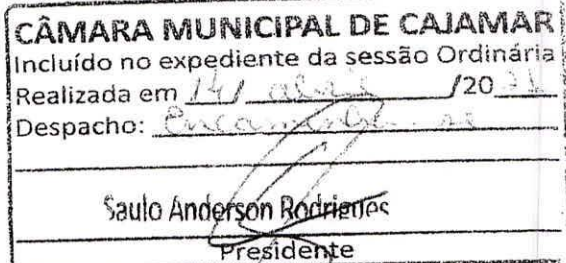 CÂMARA MUNICIPAL DE CAJAMAR
Incluído no expediente da sessão Ordinária
Realizada em 14/ abril /20
Despacho: Encaminhe-se
Saulo Anderson Rodrigues
Presidente